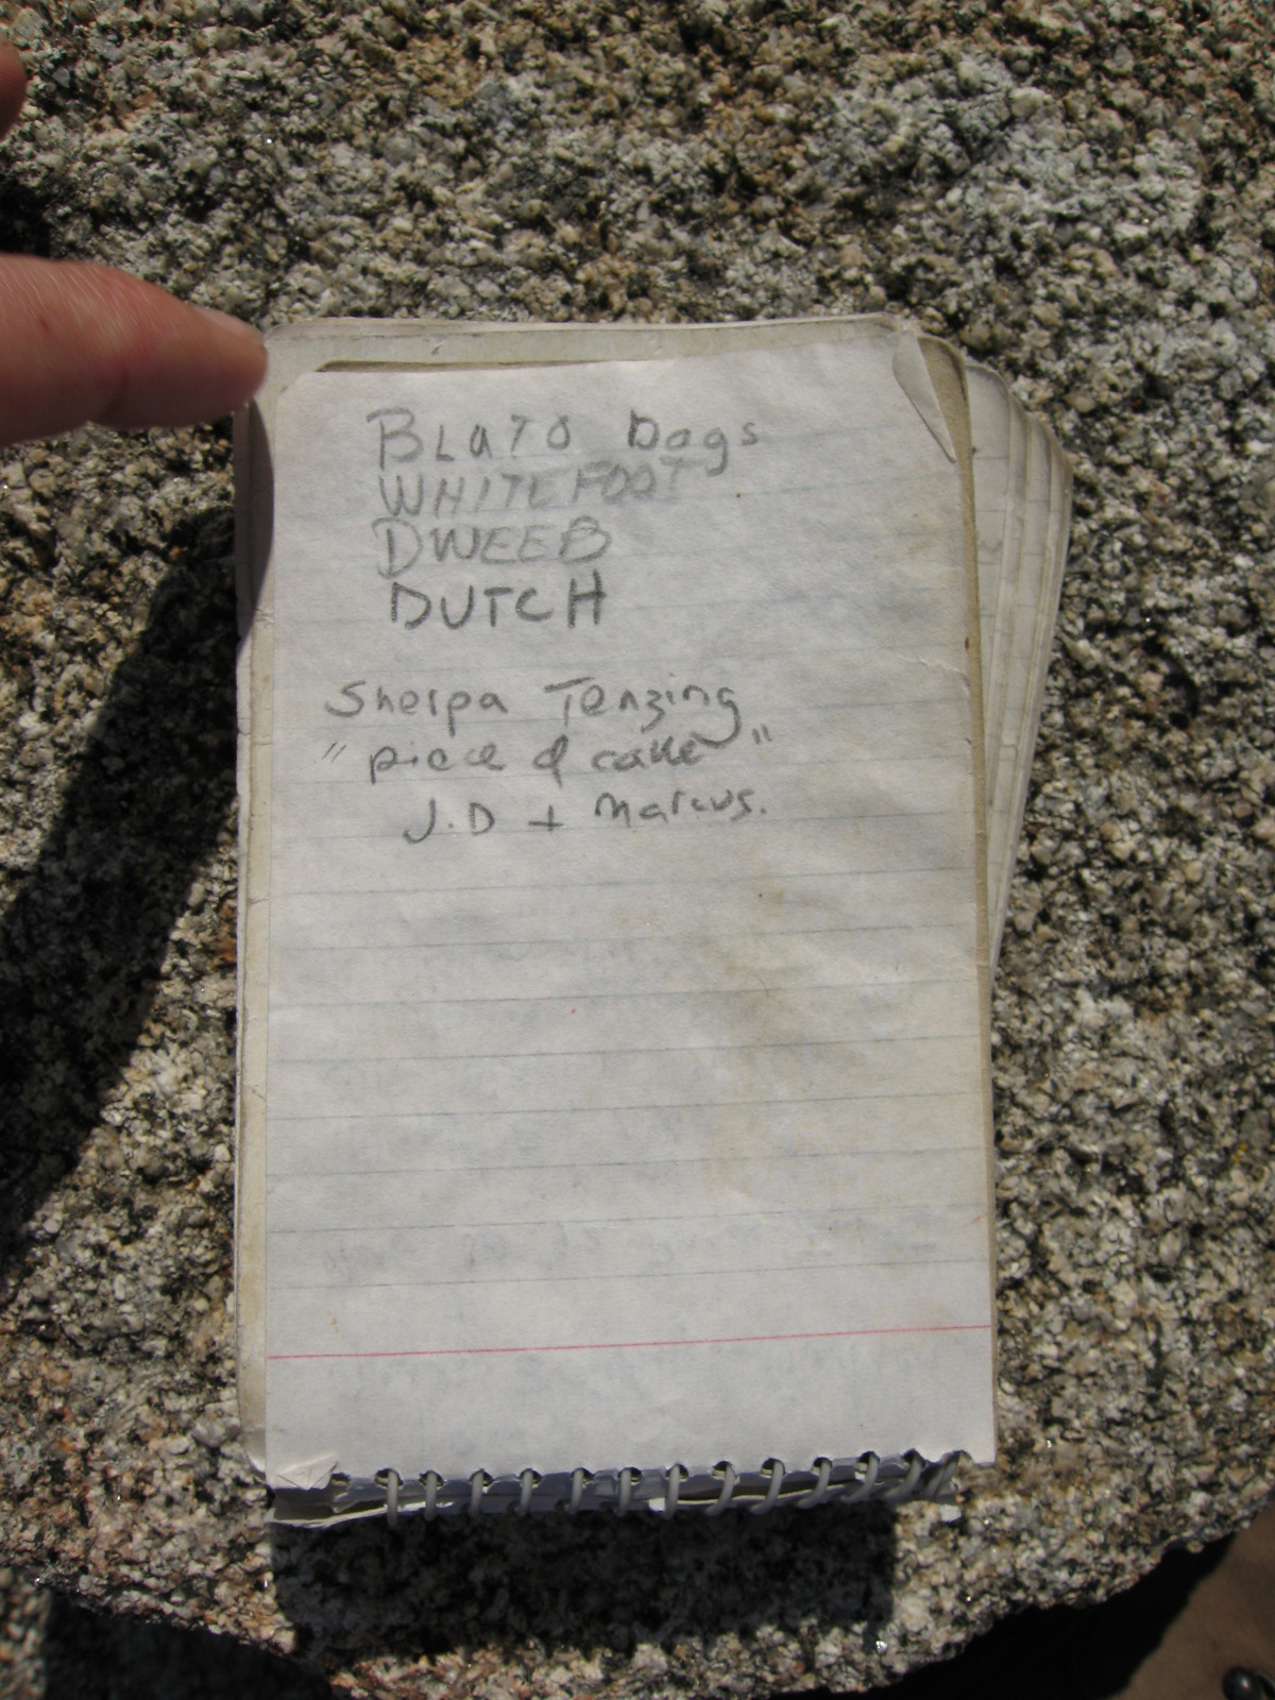 BLuTO Dogs
WHITEFOOT
DWEEB
DUTCH
Sherpa Tenzing
"piece of cake"
J.D + Marcus.